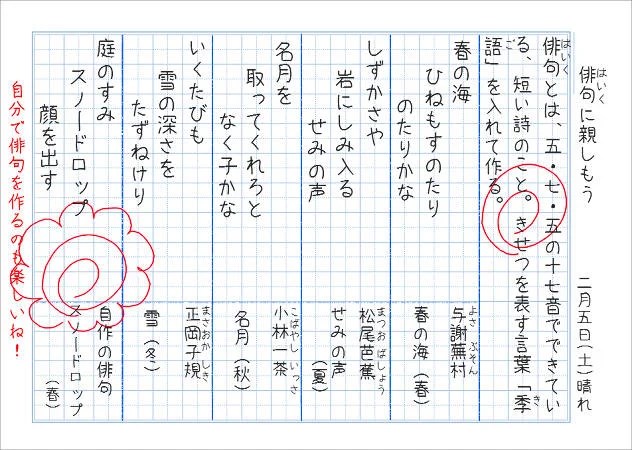 はいく
俳句に親しもう　二月五日（土）晴れ
はいく
俳句とは、五・七・五の十七音でできてい
き
る、短い詩のこと。きせつを表す言葉「季
ご
語」を入れて作る。
春の海
ひねもすのたり
のたりかな
よさ ぶそん
与謝蕪村
春の海（春）
しずかさや
岩にしみ入る
せみの声
まつお ばしょう
松尾芭蕉
せみの声（夏）
名月を
取ってくれろと
なく子かな
こばやし いっさ
小林一茶
名月（秋）
いくたびも
雪の深さを
たずねけり
まさおか しき
正岡子規
雪（冬）
庭のすみ
スノードロップ
顔を出す
自作の俳句
スノードロップ（春）
自分で俳句を作るのも楽しいね！